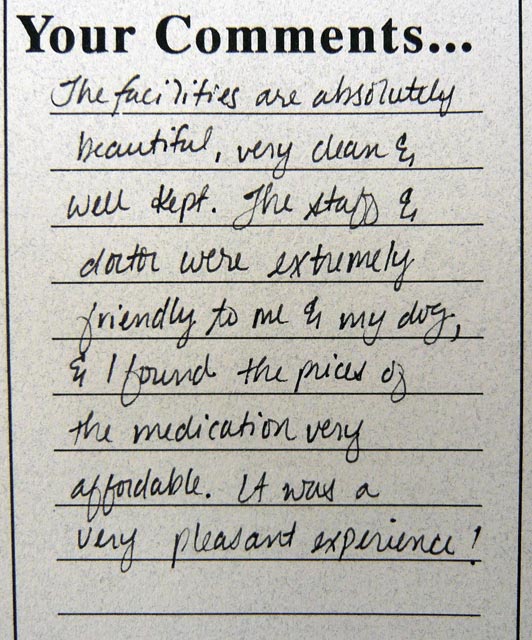 Your Comments...
The facilities are absolutely
beautiful, very clean &
well kept. The staff &
doctor were extremely
friendly to me & my dog,
& I found the prices of
the medication very
affordable. It was a
very pleasant experience!